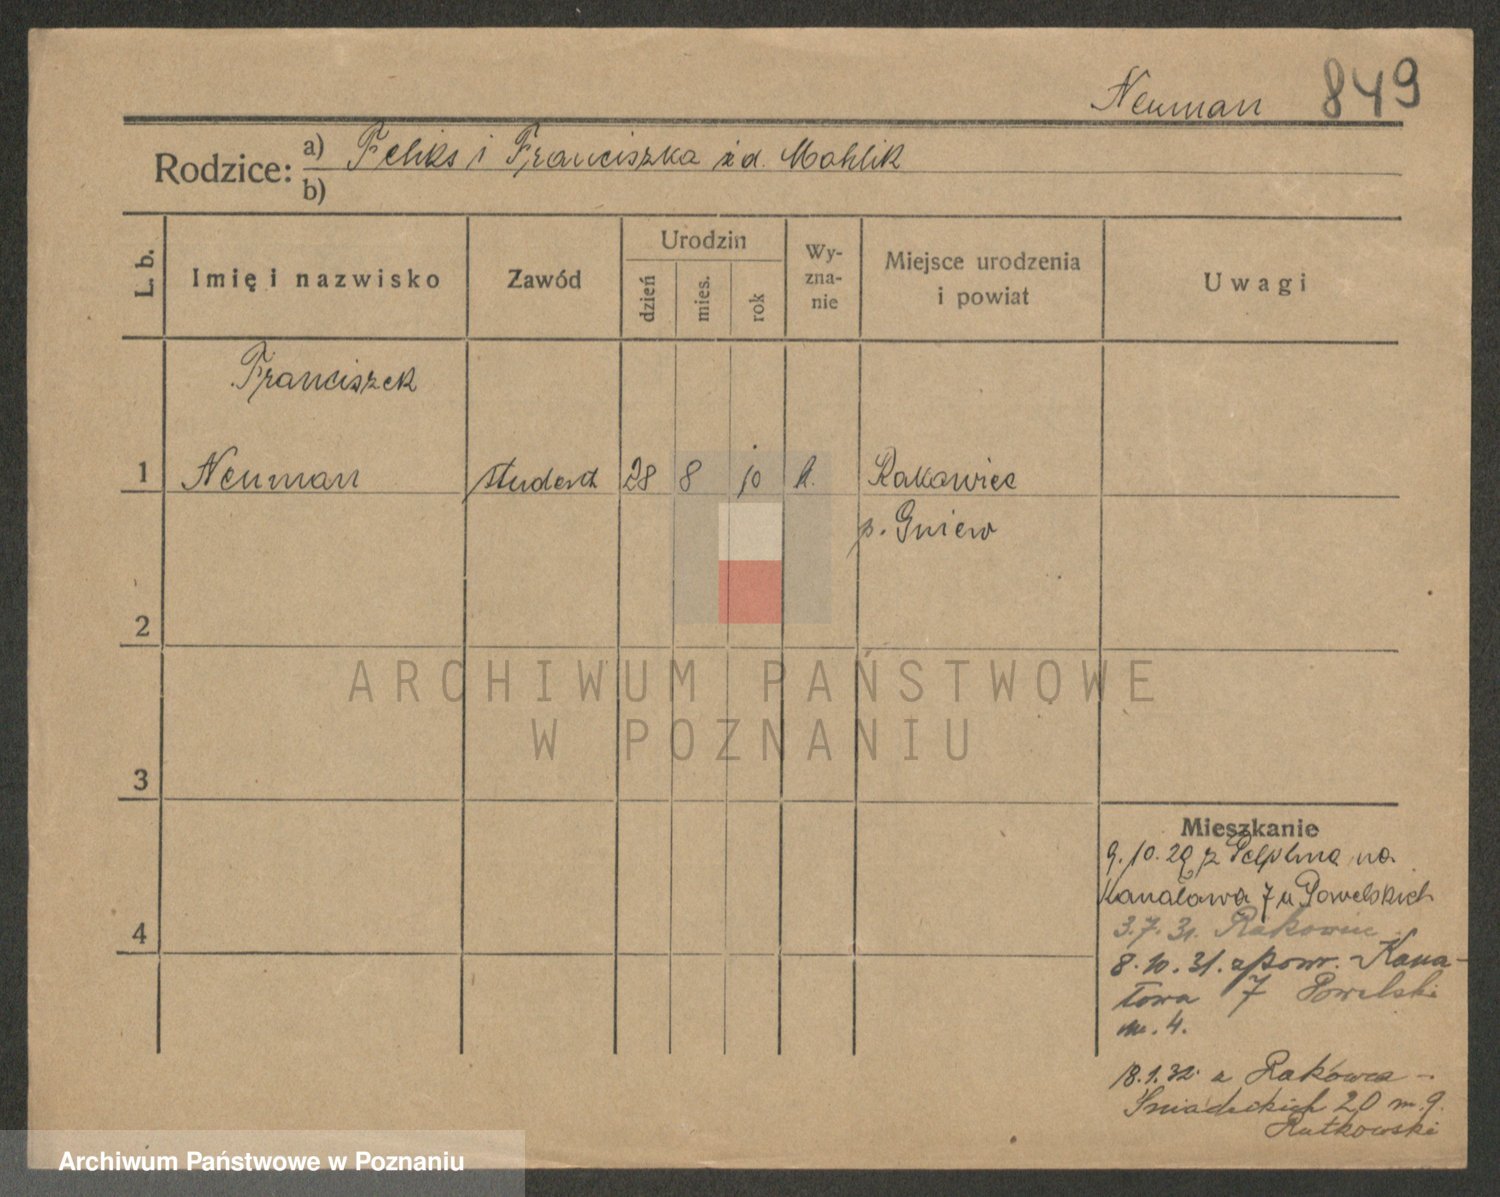 Neuman 849
Rodzice: a) Feliks i Franciszka z d. Mahlik
b)
L. b. Imię i nazwisko Zawód Urodzin dzień mies. rok Wy-zna-nie Miejsce urodzenia i powiat Uwagi
Franciszek
1 Neuman student 28 8 10 k. Rakowiec
p. Gniew
2
3
4
Mieszkanie
9.10.29 z Pelplina na
Kanałowa 7 u Pawelskich
3.7.31. Rakowiec
8.10.31. z powr. - Kana-
łowa 7 Powelski
m. 4.
18.1.32 z Rakowca -
Śniadeckich 20 m. 9.
Rutkowski
ARCHIWUM PAŃSTWOWE
W POZNANIU
Archiwum Państwowe w Poznaniu